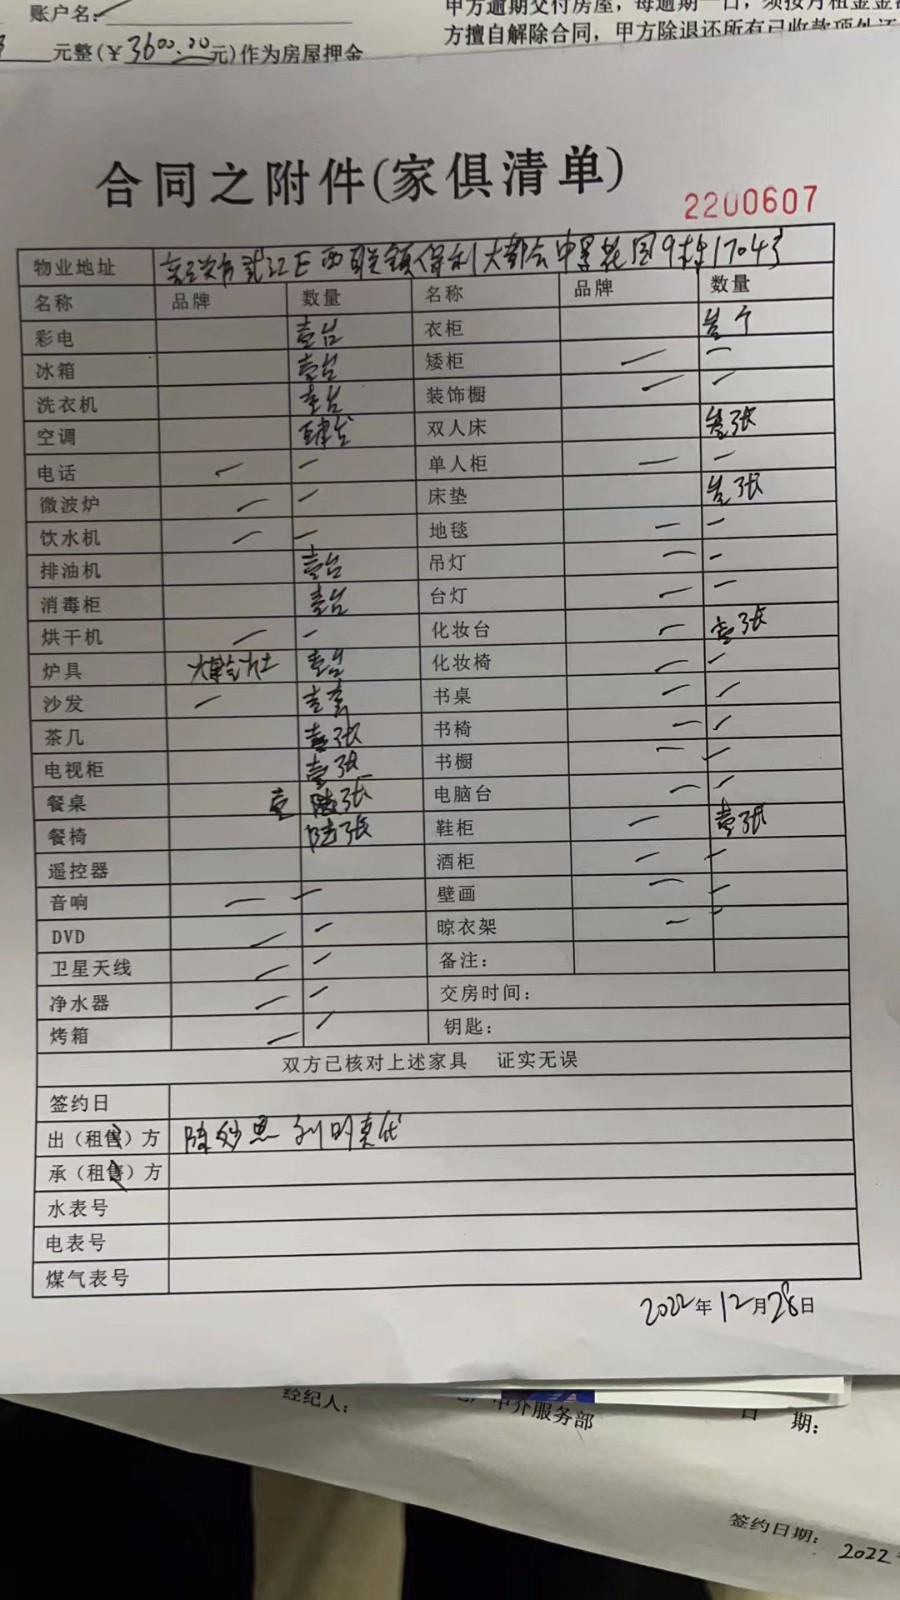 账户名:
甲方逾期交付房屋，每逾期一日，须按月租金金
元整(￥3600.00元)作为房屋押金
方擅自解除合同，甲方除退还所有已收款项外还
合同之附件(家俱清单)
2200607
物业地址 武江区西联镇保利大都会中景花园9栋1704号
名称 品牌 数量 名称 品牌 数量
彩电 壹台 衣柜 壹个
冰箱 壹台 矮柜 — —
洗衣机 壹台 装饰橱 — —
空调 肆台 双人床 壹张
电话 — — 单人柜 — —
微波炉 — — 床垫 壹张
饮水机 — — 地毯 — —
排油机 壹台 吊灯 — —
消毒柜 壹台 台灯 — —
烘干机 — — 化妆台 — 壹张
炉具 煤气灶 壹台 化妆椅 — —
沙发 — 壹套 书桌 — —
茶几 壹张 书椅 — —
电视柜 壹张 书橱 — —
餐桌 壹 张 电脑台 — —
餐椅 陆张 鞋柜 — 壹张
遥控器 酒柜 — —
音响 — — 壁画 — —
DVD — — 晾衣架 — —
卫星天线 — — 备注:
净水器 — — 交房时间:
烤箱 — — 钥匙:
双方已核对上述家具 证实无误
签约日
出（租售）方 陈妙思
承（租售）方
水表号
电表号
煤气表号
2022年12月28日
经纪人:
中介服务部
日 期:
签约日期:
2022